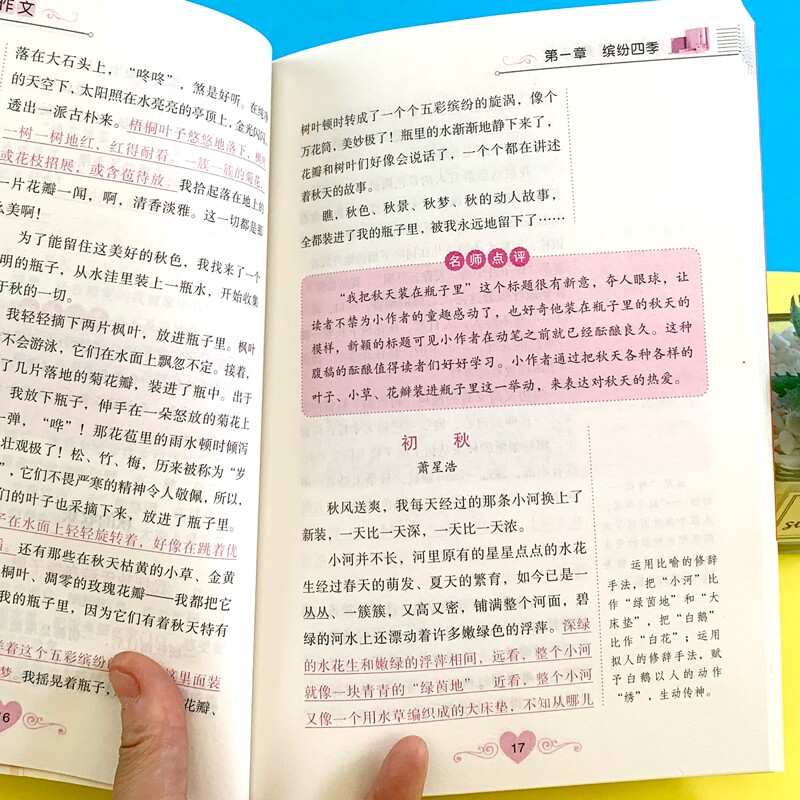 作文
落在大石头上，“咚咚”，煞是好听。在纯净
的天空下，太阳照在水亮亮的亭顶上，金光闪闪，
透出一派古朴来。梧桐叶子悠悠地落下，枫叶
一树一树地红，红得耐看。一簇一簇的菊花，
或花枝招展，或含苞待放。我拾起落在地上的
一片花瓣一闻，啊，清香淡雅。这一切都是那
么美啊！
为了能留住这美好的秋色，我找来了一个
明的瓶子，从水洼里装上一瓶水，开始收集
于秋的一切。
我轻轻摘下两片枫叶，放进瓶子里。枫叶
不会游泳，它们在水面上飘忽不定。接着，
了几片落地的菊花瓣，装进了瓶中。出于
我放下瓶子，伸手在一朵怒放的菊花上
一弹，“哗”！那花苞里的雨水顿时倾泻
壮观极了！松、竹、梅，历来被称为“岁
”，它们不畏严寒的精神令人敬佩，所以，
们的叶子也采摘下来，放进了瓶子里。
子在水面上轻轻旋转着，好像在跳着优
蹈。还有那些在秋天枯黄的小草、金黄
桐叶、凋零的玫瑰花瓣——我都把它
我的瓶子里，因为它们有着秋天特有
着这个五彩缤纷的 这里面装
梦。我摇晃着瓶子， 花瓣、
16
第一章 缤纷四季
树叶顿时转成了一个个五彩缤纷的旋涡，像个
万花筒，美妙极了！瓶里的水渐渐地静下来了，
花瓣和树叶们好像会说话了，一个个都在讲述
着秋天的故事。
瞧，秋色、秋景、秋梦、秋的动人故事，
全都装进了我的瓶子里，被我永远地留下了……
名师点评
“我把秋天装在瓶子里”这个标题很有新意，夺人眼球，让
读者不禁为小作者的童趣感动了，也好奇他装在瓶子里的秋天的
模样，新颖的标题可见小作者在动笔之前就已经酝酿良久。这种
腹稿的酝酿值得读者们好好学习。小作者通过把秋天各种各样的
叶子、小草、花瓣装进瓶子里这一举动，来表达对秋天的热爱。
初 秋
萧星浩
秋风送爽，我每天经过的那条小河换上了
新装，一天比一天深，一天比一天浓。
小河并不长，河里原有的星星点点的水花
生经过春天的萌发、夏天的繁育，如今已是一
丛丛、一簇簇，又高又密，铺满整个河面，碧
绿的河水上还漂动着许多嫩绿色的浮萍。深绿
的水花生和嫩绿的浮萍相间，远看，整个小河
就像一块青青的“绿茵地”。近看，整个小河
又像一个用水草编织成的大床垫，不知从哪儿
运用比喻的修辞
手法，把“小河”比
作“绿茵地”和“大
床垫”，把“白鹅”
比作“白花”；运用
拟人的修辞手法，赋
予白鹅以人的动作
“绣”，生动传神。
17